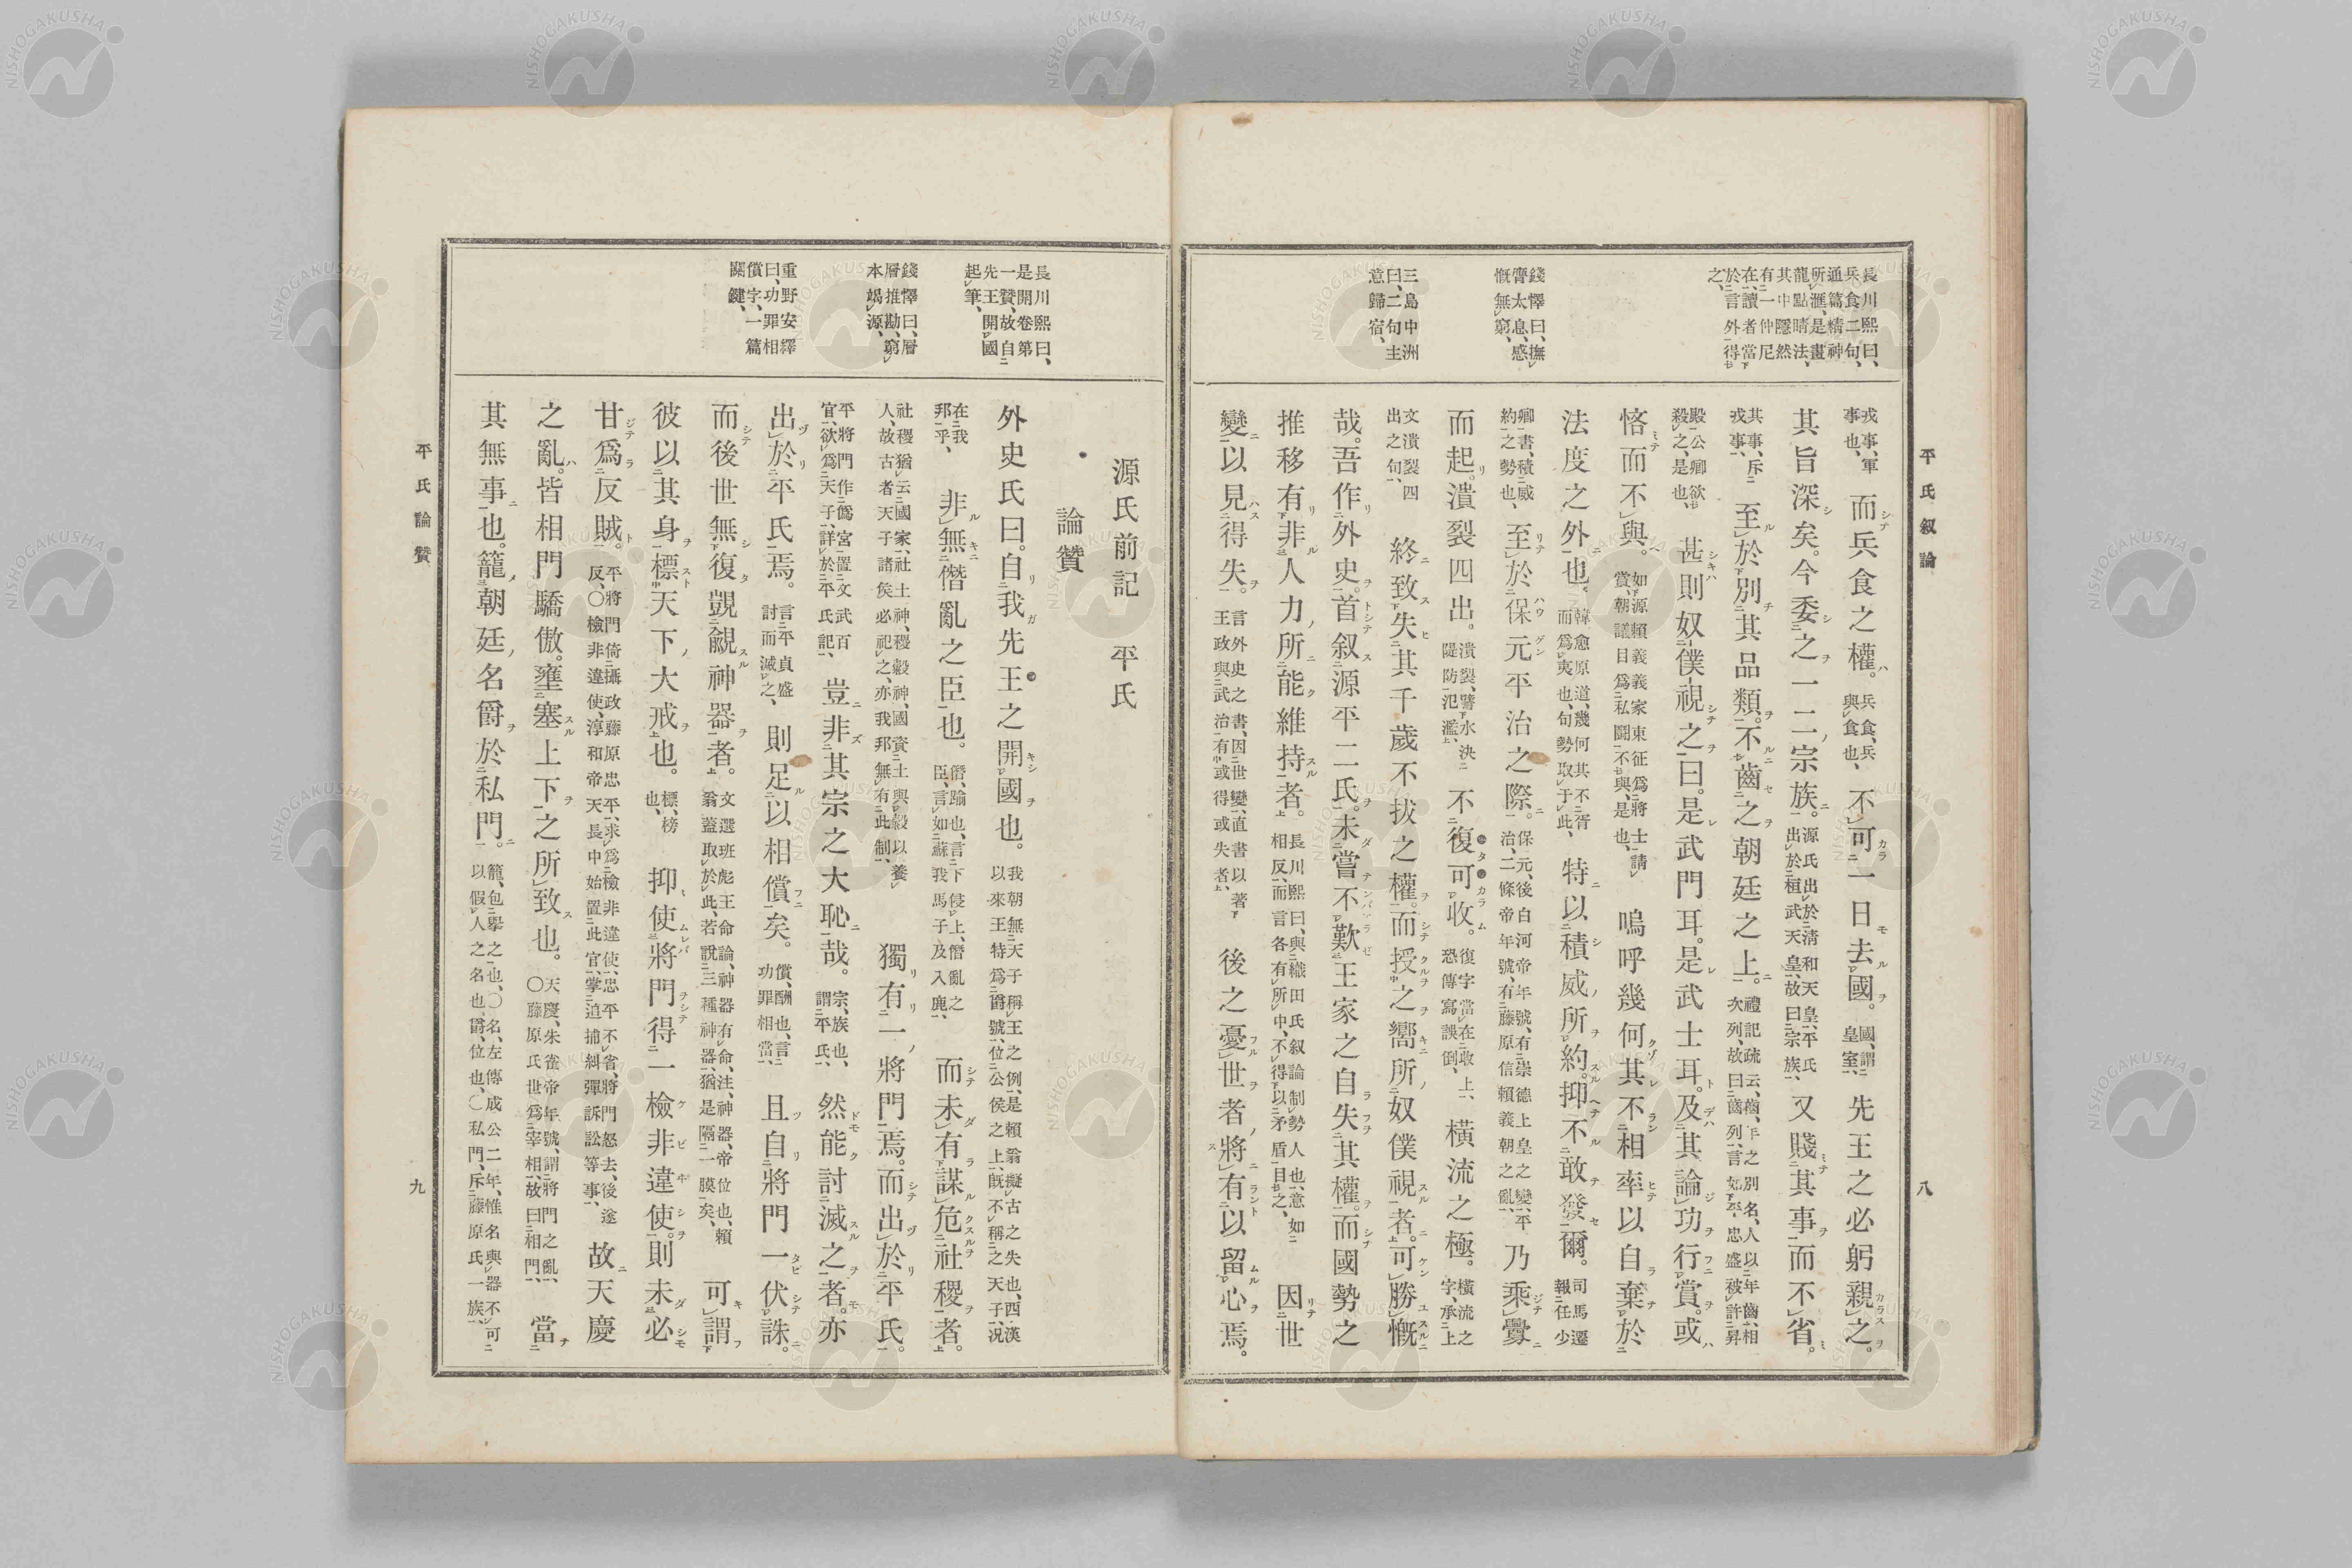 平氏叙論
八
長川熙曰、
兵食二句、
通篇精神
所滙、是畫
龍點睛法、
其中隱然
有一仲尼
在、讀者當
於言外得
之、
錢懌曰、撫
膺太息、感
慨無窮、
三島中洲
曰、二句主
意歸宿、
戎事、軍事也、而兵食之權。兵食、兵與食也、不可一日去國。國、謂皇室、先王之必躬親之。
其旨深矣。今委之一二宗族。源氏出於清和天皇、平氏出於桓武天皇、故曰宗族、又賤其事而不省。
其事、斥戎事、至於別其品類。不齒之朝廷之上。禮記疏云、齒、年之別名、人以年齒、相次列、故曰齒列、言如平忠盛被許昇
殿公卿欲殺之、是也、甚則奴僕視之。曰。是武門耳。是武士耳。及其論功行賞。或
悋而不與。如源賴義義家東征爲將士請賞、朝議目爲私鬪不與、是也、嗚呼幾何其不相率以自棄於
法度之外也。韓愈原道、幾何其不胥而爲夷也、句勢取于此、特以積威所約。抑不敢發爾。司馬遷報任少
卿書、積威約之勢也、至於保元平治之際。保元、後白河帝年號、有崇德上皇之變、平治、二條帝年號、有藤原信賴義朝之亂、乃乘釁
而起。潰裂四出。潰裂、譬水決隄防氾濫、不復可收。復字當在收上、恐傳寫誤倒、橫流之極。橫流之字、承上
文潰裂四出之句、終致失其千歲不拔之權。而授之嚮所奴僕視者。可勝慨
哉。吾作外史。首叙源平二氏。未嘗不歎王家之自失其權。而國勢之
推移有非人力所能維持者。長川熙曰、與織田氏叙論制勢人也、意如相反、而言各有所中、不得以矛盾目之、因世
變以見得失。言外史之書、因世變、直書以著王政與武治有或得或失者、後之憂世者。將有以留心焉。
長川熙曰、
是開卷第
一贊、故自
先王開國
起筆、
錢懌曰、層
層推勘、窮
本竭源、
重野安繹
曰、功罪相
償字、一篇
關鍵、
源氏前記　平氏
論贊
外史氏曰。自我先王之開國也。我朝無天子稱王之例、是賴翁擬古之失也、西漢以來王特爲爵號、位公侯之上、既不稱之天子、況
在我邦乎、非無僭亂之臣也。僭、踰也、言下侵上、僭亂之臣、言如蘇我馬子及入鹿、而未有謀危社稷者。
社稷猶云國家、社土神、稷穀神、國資土與穀以養人、故古者天子諸侯必祀之、亦我邦無有此制、獨有一將門焉。而出於平氏。
平將門作僞宮置文武百官、欲爲天子、詳於平氏記、豈非其宗之大恥哉。宗、族也、謂平氏、然能討滅之者。亦
出於平氏焉。言平貞盛討而滅之、則足以相償矣。償、酬也、言功罪相當、且自將門一伏誅。
而後世無復覬覦神器者。文選班彪王命論、神器有命、注、神器、帝位也、賴翁蓋取於此、若說三種神器、猶是隔一膜矣、可謂
彼以其身標天下大戒也。標、榜也、抑使將門得一檢非違使。則未必
甘爲反賊。平將門倚攝政藤原忠平、求爲檢非違使、忠平不省、將門怒去、後遂反、〇檢非違使、淳和帝天長中始置此官、掌追捕糾彈訴訟等事、故天慶
之亂。皆相門驕傲。壅塞上下之所致也。天慶、朱雀帝年號、謂將門之亂、〇藤原氏世爲宰相、故曰相門、當
其無事也。籠朝廷名爵於私門。籠、包擧之也、〇名、左傳成公二年、惟名與器不可以假人之名也、爵、位也、〇私門、斥藤原氏一族、
平氏論贊
九